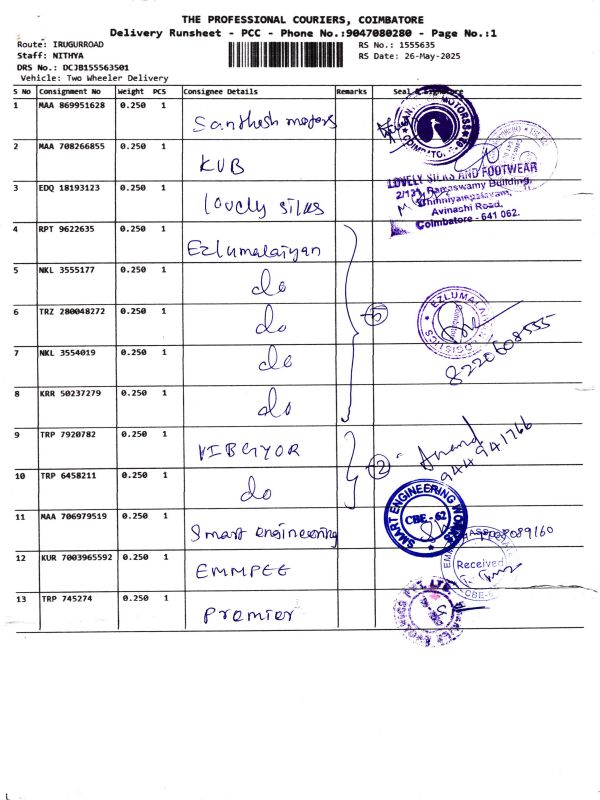 THE PROFESSIONAL COURIERS, COIMBATORE
Delivery Runsheet - PCC - Phone No.:9047080280 - Page No.:1
Route: IRUGURROAD
RS No.: 1555635
Staff: NITHYA
RS Date: 26-May-2025
DRS No.: DCJB155563501
Vehicle: Two Wheeler Delivery
S No Consignment No Weight PCS Consignee Details Remarks Seal & Signature
1 MAA 869951628 0.250 1 Santhesh motors
2 MAA 708266855 0.250 1 KVB
3 EDQ 18193123 0.250 1 lovely silks
LOVELY SILKS AND FOOTWEAR
2/131, Ramaswamy Building,
Chinniyampalayam,
Avinashi Road,
Coimbatore - 641 062.
4 RPT 9622635 0.250 1 Ezlumalaiyan
5 NKL 3555177 0.250 1 do
6 TRZ 280048272 0.250 1 do 5
8220608555
7 NKL 3554019 0.250 1 do
8 KRR 50237279 0.250 1 do
9 TRP 7920782 0.250 1 VIBGYOR 2
Anand
944941766
10 TRP 6458211 0.250 1 do
11 MAA 706979519 0.250 1 Smart engineering
SMART ENGINEERING WORKS
CBE - 62
12 KUR 7003965592 0.250 1 EMMPEE
Received
CBE-6
13 TRP 745274 0.250 1 Premier